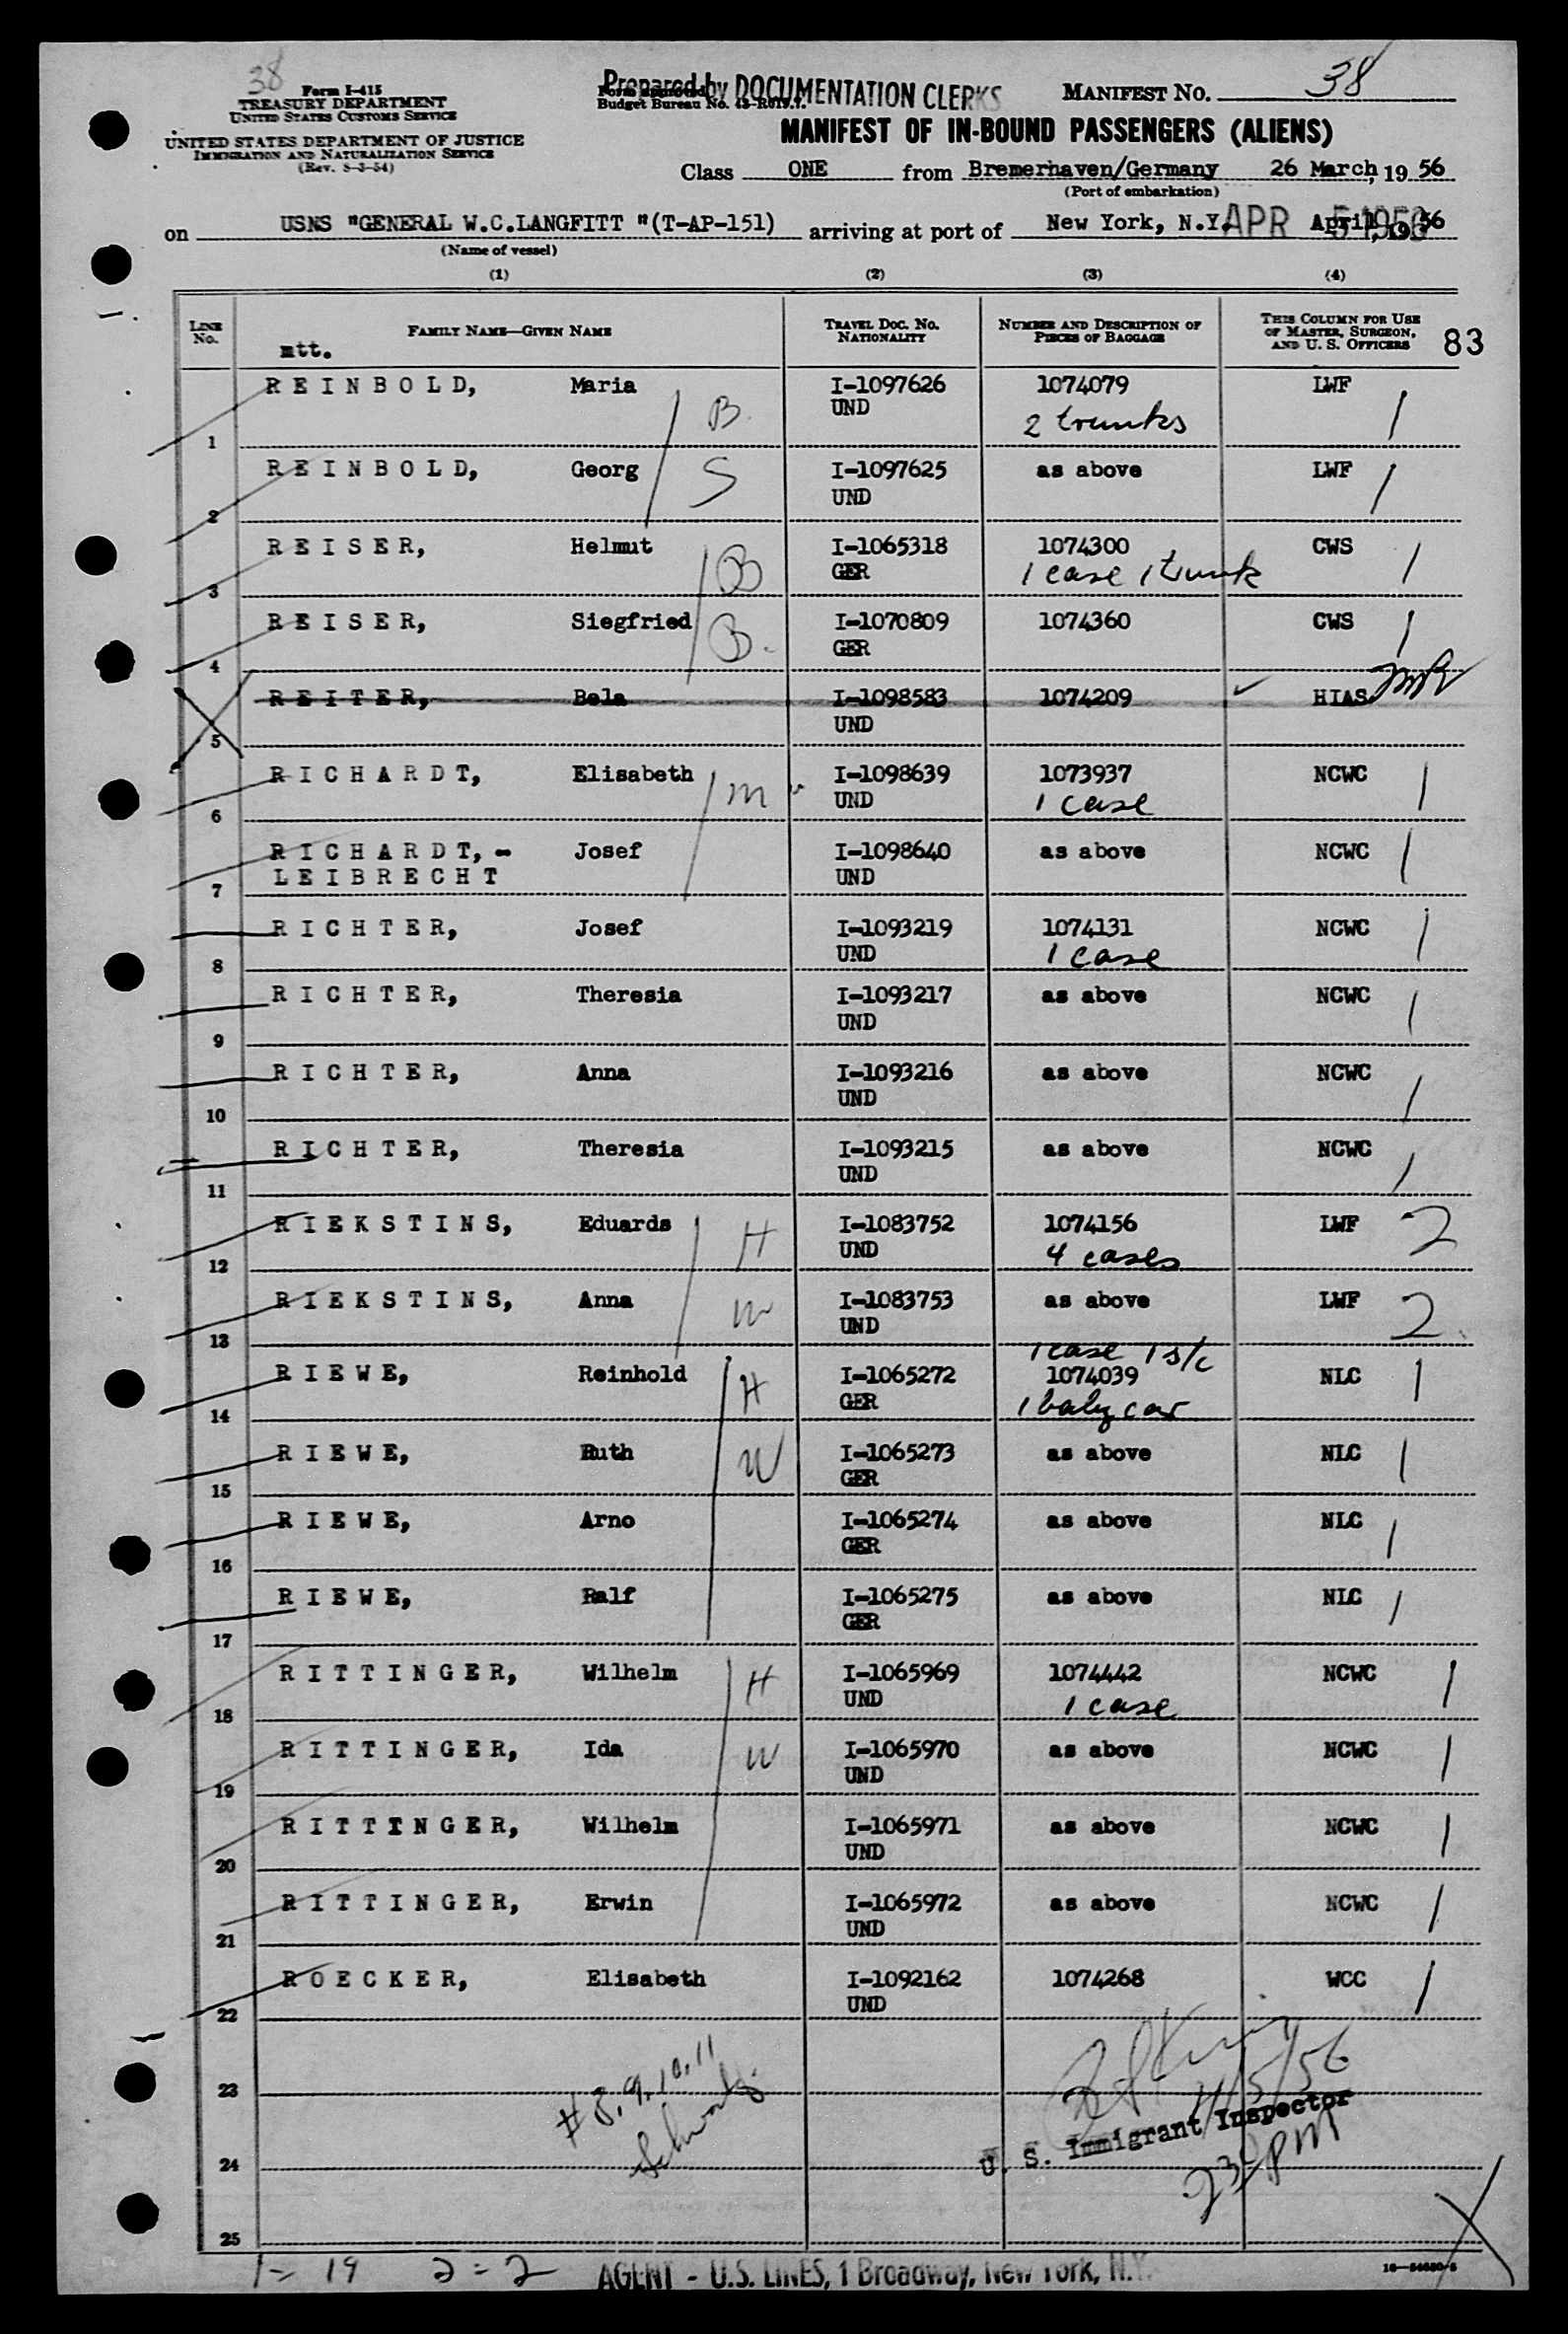 38
Form I-415
TREASURY DEPARTMENT
UNITED STATES CUSTOMS SERVICE
UNITED STATES DEPARTMENT OF JUSTICE
IMMIGRATION AND NATURALIZATION SERVICE
(Rev. 8-3-54)
Prepared by DOCUMENTATION CLERKS
Form approved
Budget Bureau No.
MANIFEST NO. 38
MANIFEST OF IN-BOUND PASSENGERS (ALIENS)
Class ONE from Bremerhaven/Germany 26 March, 19 56
(Port of embarkation)
on USNS "GENERAL W.C.LANGFITT "(T-AP-151) arriving at port of New York, N.Y. APR 5 1956 April, 19 56
(Name of vessel)
(1) (2) (3) (4)
LINE No. FAMILY NAME—GIVEN NAME TRAVEL DOC. NO. NATIONALITY NUMBER AND DESCRIPTION OF PIECES OF BAGGAGE THIS COLUMN FOR USE OF MASTER, SURGEON, AND U. S. OFFICERS 83
mtt.
REINBOLD, Maria B. I-1097626 1074079 LWF 1
1 UND 2 trunks
REINBOLD, Georg S I-1097625 as above LWF 1
2 UND
REISER, Helmut B I-1065318 1074300 CWS 1
3 GER 1 case 1 trunk
REISER, Siegfried B. I-1070809 1074360 CWS 1
4 GER
REITER, Bela I-1098583 1074209 HIAS
5 UND
RICHARDT, Elisabeth m I-1098639 1073937 NCWC 1
6 UND 1 case
RICHARDT,- Josef I-1098640 as above NCWC 1
7 LEIBRECHT UND
RICHTER, Josef I-1093219 1074131 NCWC 1
8 UND 1 case
RICHTER, Theresia I-1093217 as above NCWC 1
9 UND
RICHTER, Anna I-1093216 as above NCWC 1
10 UND
RICHTER, Theresia I-1093215 as above NCWC 1
11 UND
RIEKSTINS, Eduards H I-1083752 1074156 LWF 2
12 UND 4 cases
RIEKSTINS, Anna W I-1083753 as above LWF 2
13 UND
1 case 1 s/c
RIEWE, Reinhold H I-1065272 1074039 NLC 1
14 GER 1 baby car
RIEWE, Ruth W I-1065273 as above NLC 1
15 GER
RIEWE, Arno I-1065274 as above NLC 1
16 GER
RIEWE, Ralf I-1065275 as above NLC 1
17 GER
RITTINGER, Wilhelm H I-1065969 1074442 NCWC 1
18 UND 1 case
RITTINGER, Ida W I-1065970 as above NCWC 1
19 UND
RITTINGER, Wilhelm I-1065971 as above NCWC 1
20 UND
RITTINGER, Erwin I-1065972 as above NCWC 1
21 UND
ROECKER, Elisabeth I-1092162 1074268 WCC 1
22 UND
# 8, 9, 10, 11
4/5/56
23
U. S. Immigrant Inspector
24
25
1 = 19 2 = 2 AGENT - U.S. LINES, 1 Broadway, New York, N.Y.